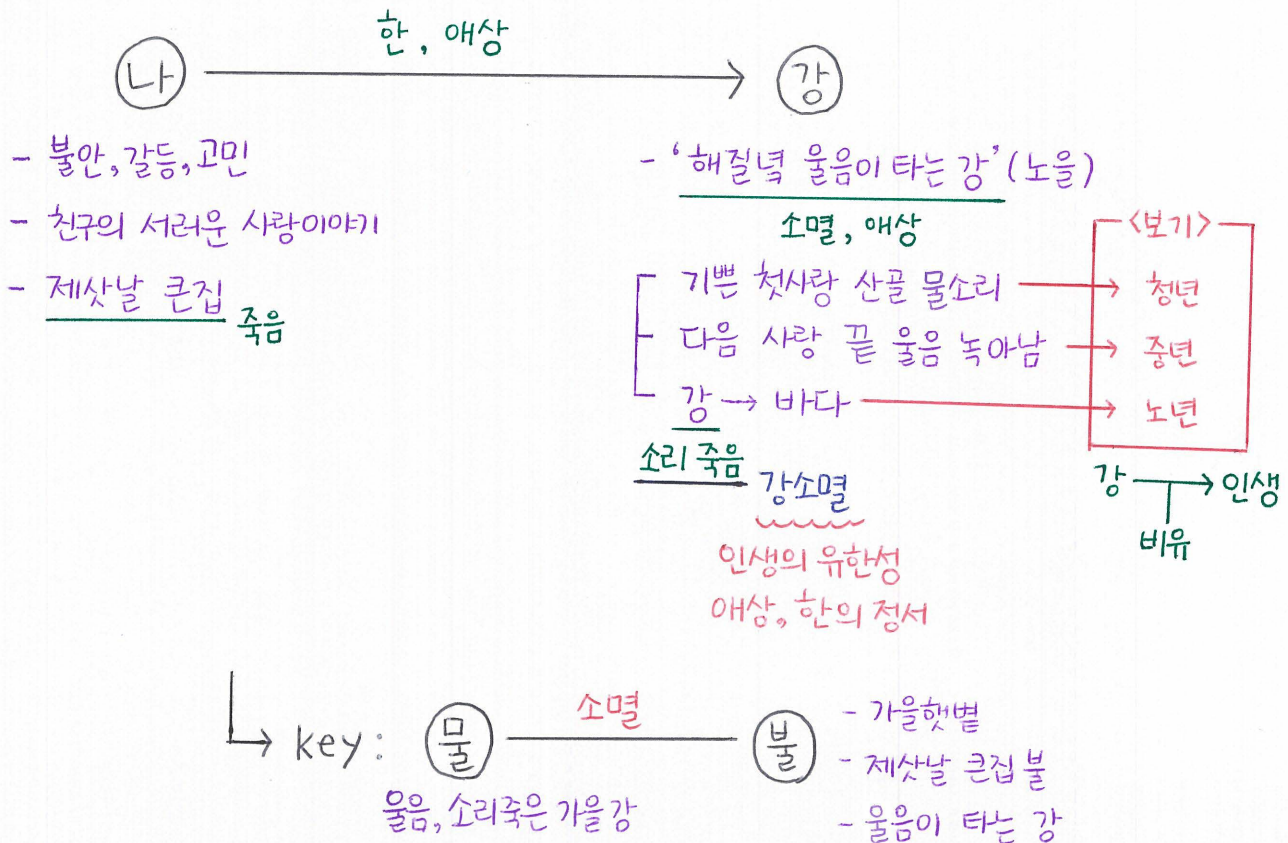 한, 애상
나
강
- 불안, 갈등, 고민
- 친구의 서러운 사랑이야기
- 제삿날 큰집
죽음
- '해질녘 울음이 타는 강' (노을)
소멸, 애상
<보기>
기쁜 첫사랑 산골 물소리 → 청년
다음 사랑 끝 울음 녹아남 → 중년
강 → 바다 → 노년
소리 죽음
강소멸
인생의 유한성
애상, 한의 정서
강 → 인생
비유
key: 물 소멸 불
울음, 소리죽은 가을강
- 가을햇볕
- 제삿날 큰집 불
- 울음이 타는 강